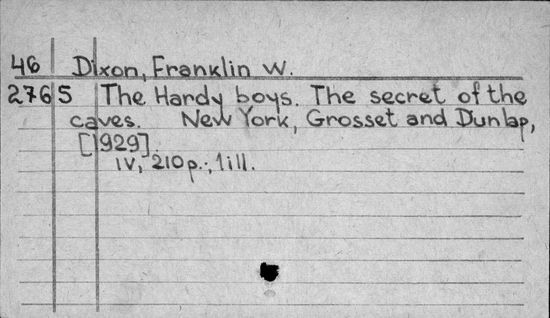 46 Dixon, Franklin W.
2765 The Hardy boys. The secret of the
caves. New York, Grosset and Dunlap,
[1929].
IV, 210 p.; 1 ill.